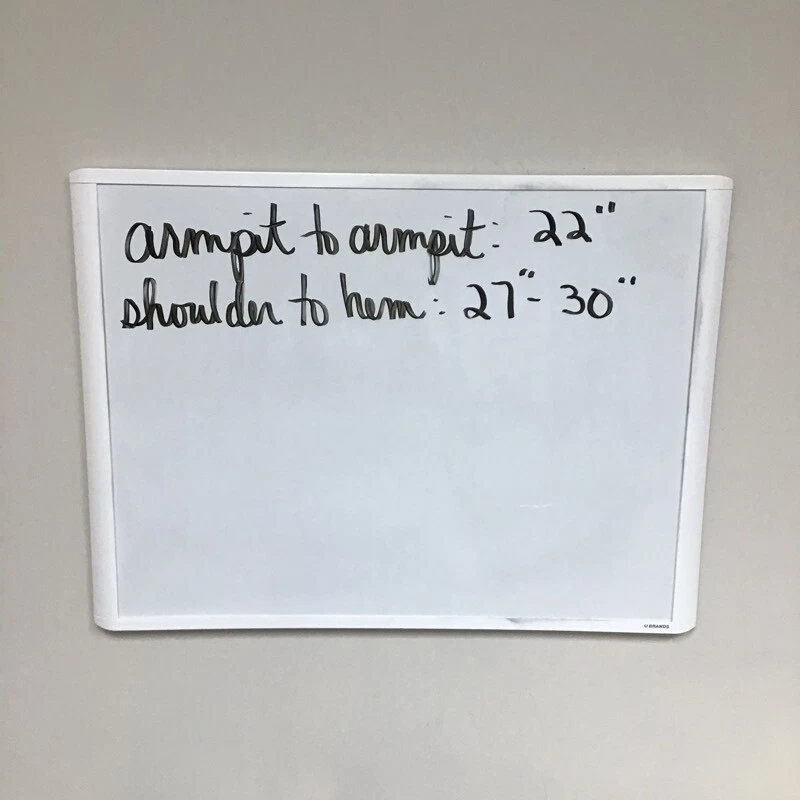 armpit to armpit: 22"
shoulder to hem: 27"- 30"
U BRANDS